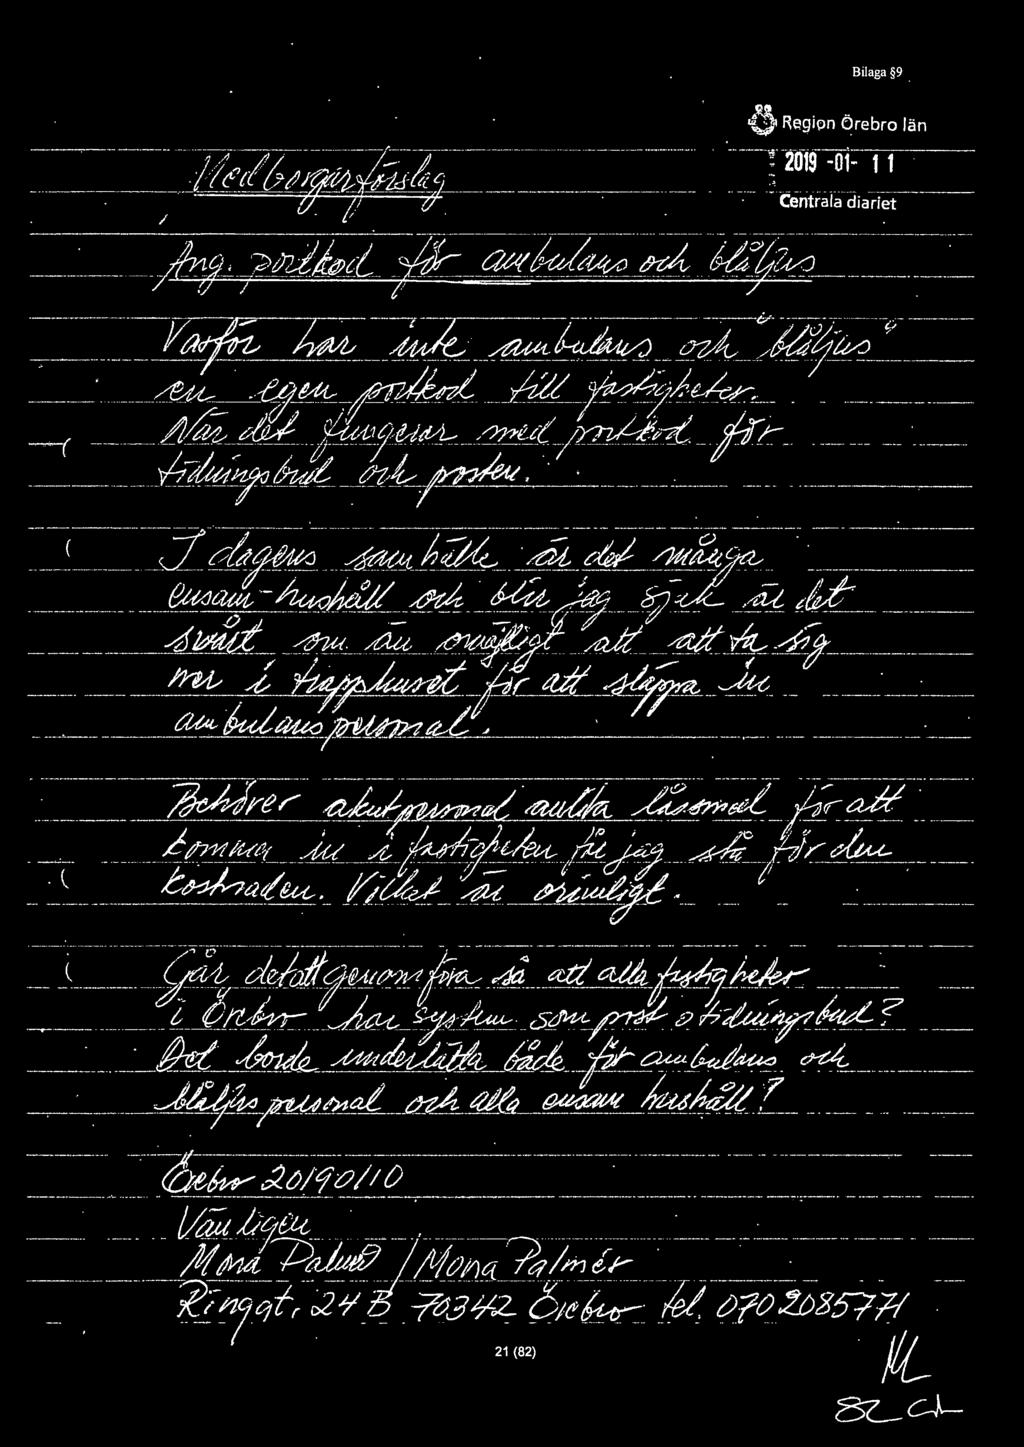 Bilaga §9
Region Örebro län
2019 -01- 11
Centrala diariet
Medborgarförslag
Ang. portkod för ambulans och blåljus
Varför har inte ambulans och "blåljus"
en egen portkod till fastigheter.
När det fungerar med portkod för
tidningsbud och posten.
I dagens samhälle är det många
ensam-hushåll och blir jag sjuk är det
svårt om än omöjligt att att ta sig
ner i trapphuset för att släppa in
ambulanspersonal.
Behöver akutpersonal anlita låssmed för att
komma in i fastigheten får jag stå för den
kostnaden. Vilket är orimligt.
Går det att genomföra så att alla fastigheter
i Örebro har system som post o tidningsbud?
Det borde underlätta både för ambulans och
blåljus personal och alla ensam hushåll?
Örebro 20190110
Vänligen
Mona Palmér / Mona Palmér
Ringgt. 24 B 70342 Örebro tel. 0702085771
21 (82)
82